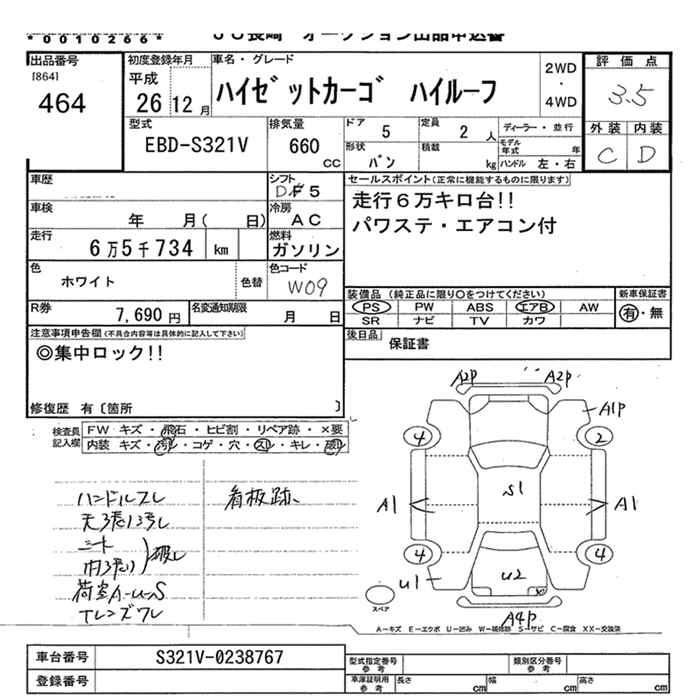 *0010266*
JU長崎 オークション出品申込書
出品番号
[864]
464
初度登録年月
平成
26 12 月
車名・グレード
ハイゼットカーゴ ハイルーフ
2WD
・
4WD
評価点
3.5
外装 内装
C D
型式
EBD-S321V
排気量
660 CC
ドア 5
形状 バン
定員 2 人
積載 kg
ディーラー・並行
モデル年式 年
ハンドル 左・右
車歴
シフト
5
車検
年 月( 日)
冷房
AC
走行
6万5千734 km
燃料
ガソリン
色
ホワイト
色替
色コード
W09
R券
7,690円
名変通知期限
月 日
セールスポイント(正常に機能するものに限ります)
走行6万キロ台!!
パワステ・エアコン付
装備品(純正品に限り〇をつけてください)
新車保証書
PS PW ABS エアB AW
SR ナビ TV カワ
有・無
後日品
保証書
注意事項申告欄(不具合内容等は具体的に記入して下さい)
◎集中ロック!!
修復歴 有〔箇所 〕
検査員
記入欄
FW キズ・飛石・ヒビ割・リペア跡・×要
内装 キズ・汚れ・コゲ・穴・スレ・キレ・
ハンドルスレ
看板跡、
シート
内張り
破レ
荷室A-U-S
A2P A2P
A1P
4 2
A1 S1 A1
4 4
U1 U2
A4P
スペア
A-キズ E-エクボ U-凹み W-補修跡 S-サビ C-腐食 XX-交換済
車台番号
S321V-0238767
登録番号
型式指定番号
参考
類別区分番号
参考
車庫証明用
参考
長さ cm 幅 cm 高さ cm